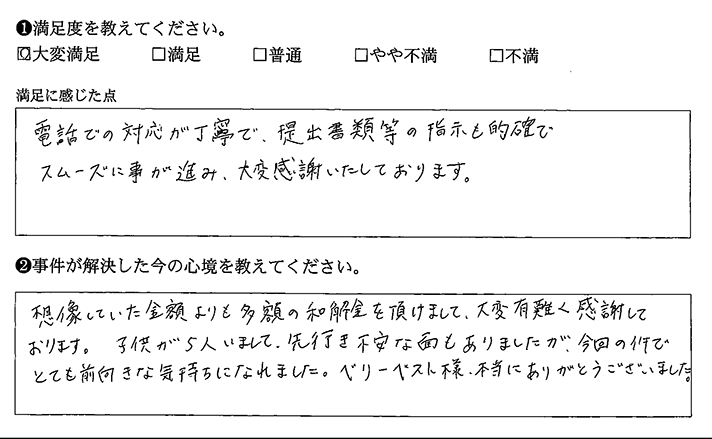 ❶満足度を教えてください。
☑大変満足 □満足 □普通 □やや不満 □不満
満足に感じた点
電話での対応が丁寧で、提出書類等の指示も的確で
スムーズに事が進み、大変感謝いたしております。
❷事件が解決した今の心境を教えてください。
想像していた金額よりも多額の和解金を頂けまして、大変有難く感謝して
おります。 子供が5人いまして、先行き不安な面もありましたが、今回の件で
とても前向きな気持ちになれました。ベリーベスト様、本当にありがとうございました。